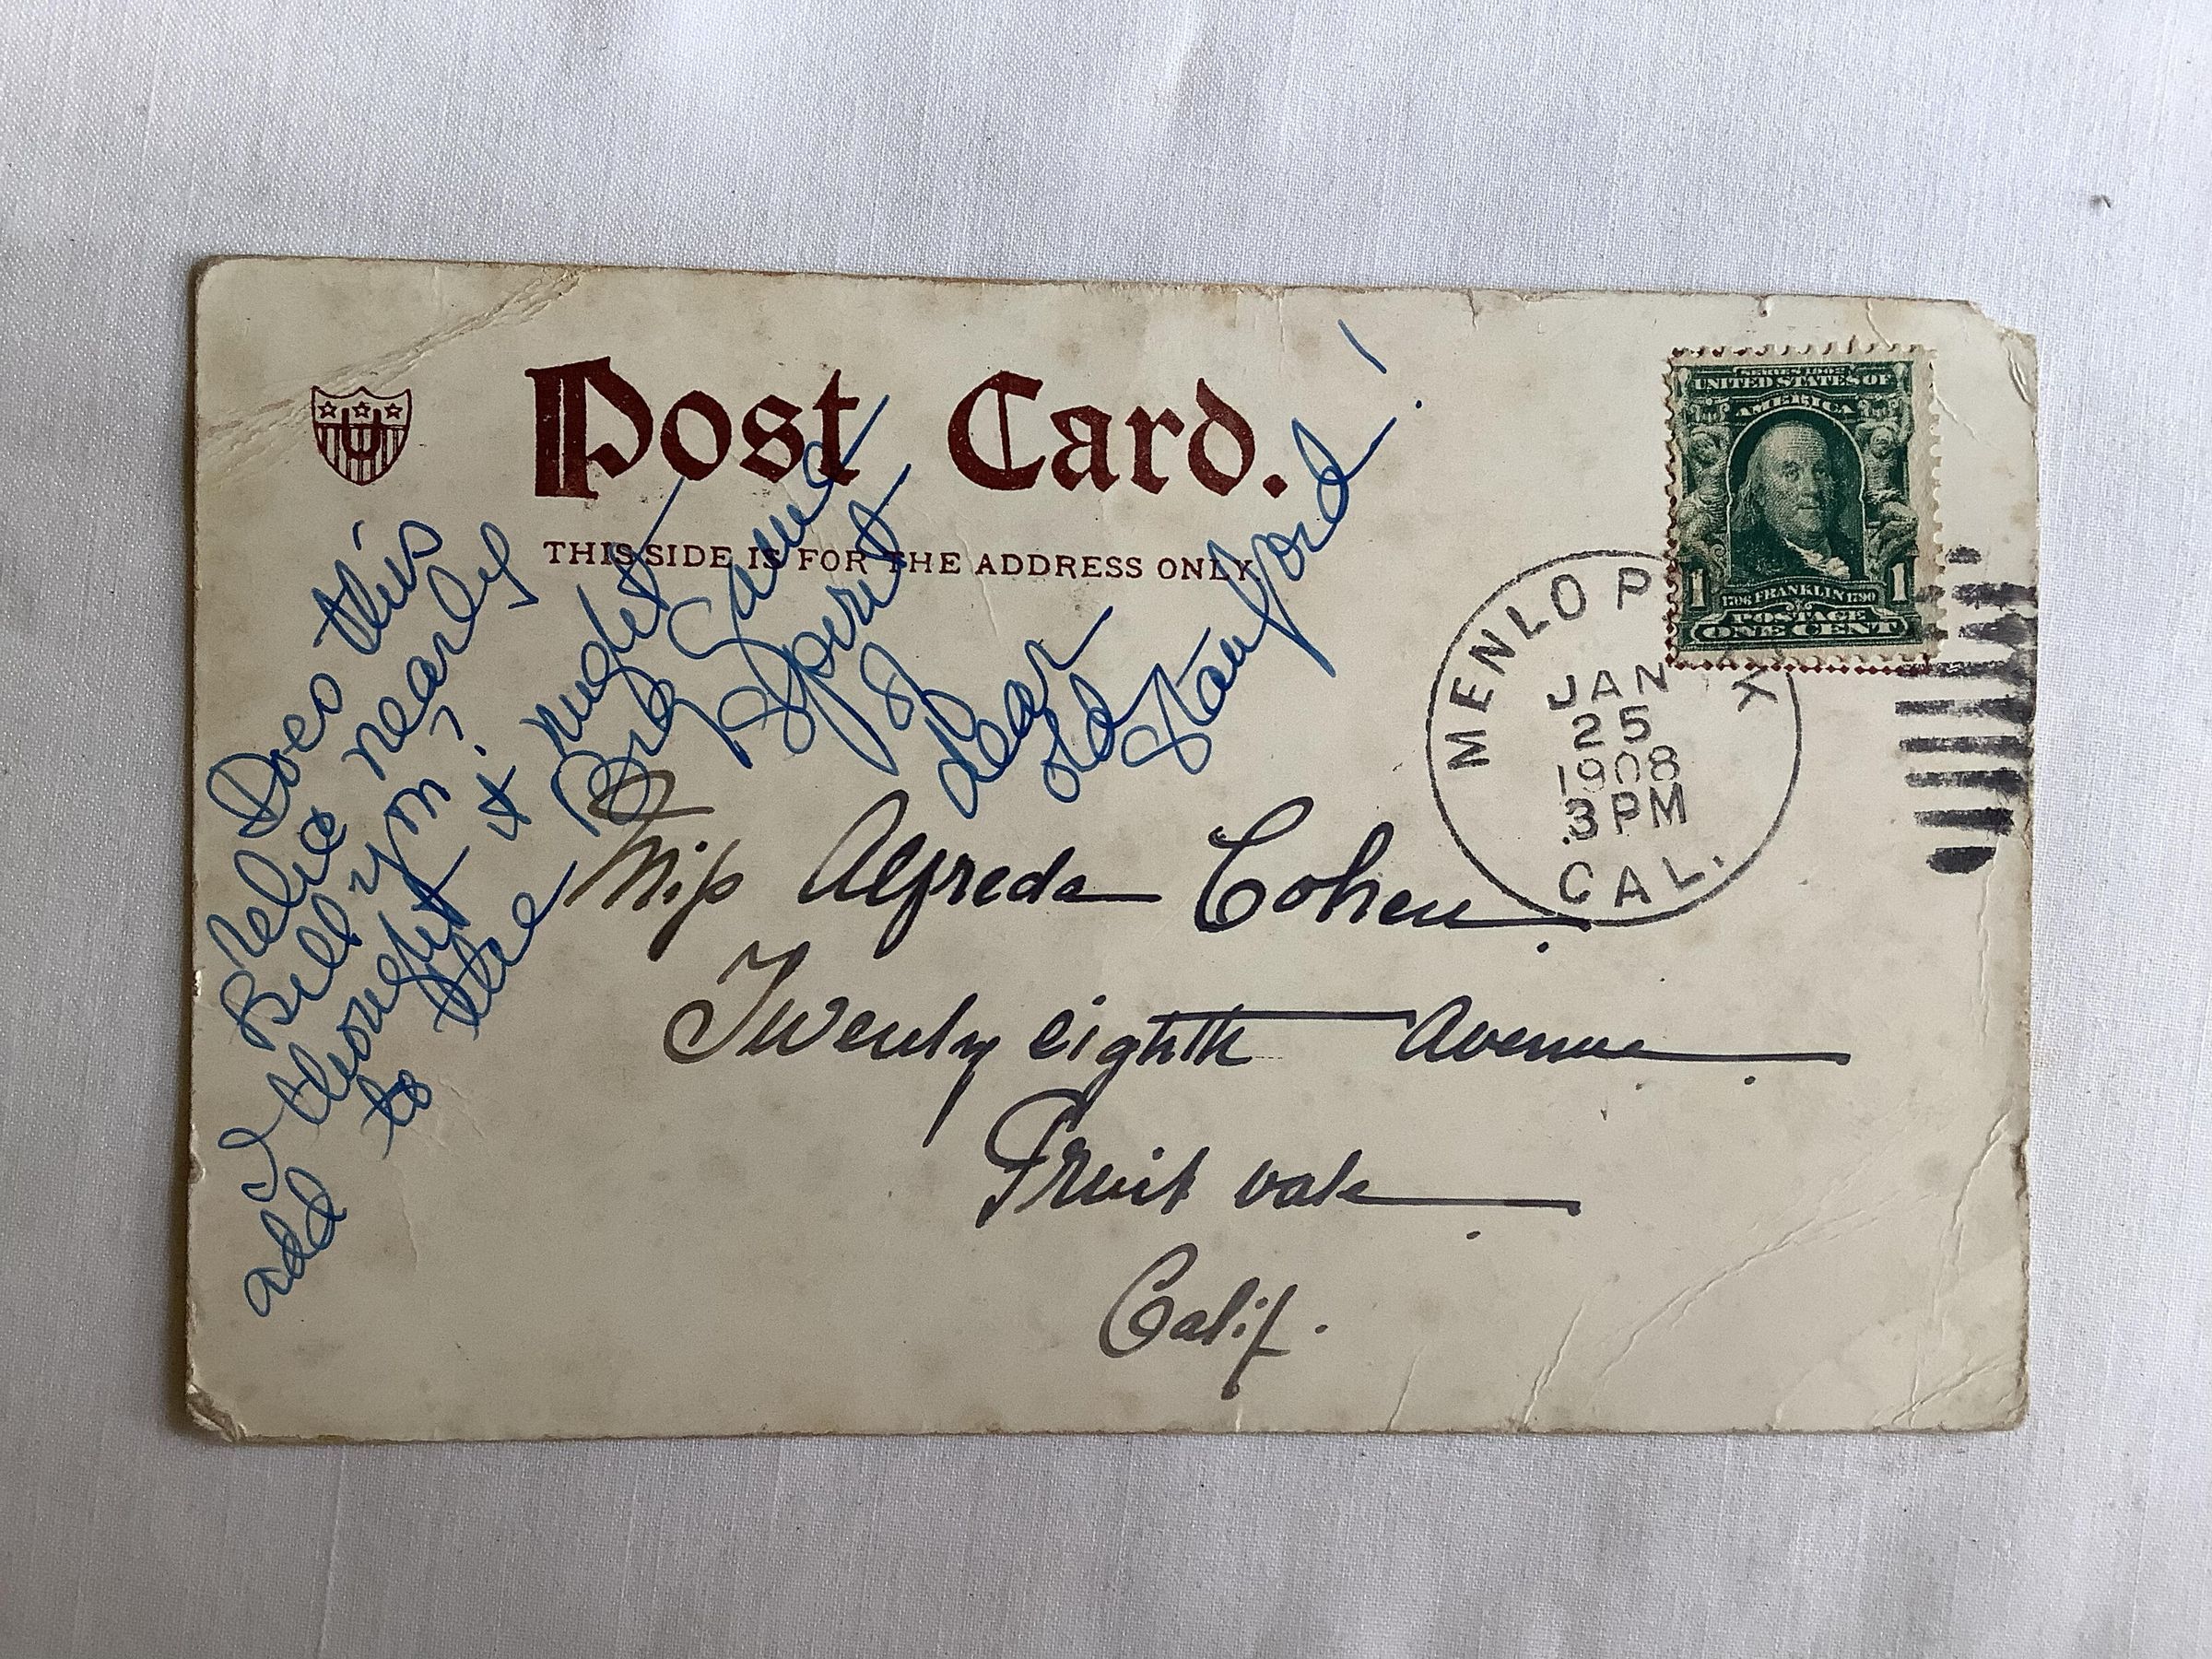 Post Card.
THIS SIDE IS FOR THE ADDRESS ONLY.
U
Does this
relic nearly
kill you!
I thought it might
add to the Big Game
Spirit
& dear
old
Stanford!
SERIES 1902
UNITED STATES OF
AMERICA
1 1
1706 FRANKLIN 1790
POSTAGE
ONE CENT
MENLO P K
JAN
25
1908
3 PM
CAL.
Miss Alfreda Cohen.
Twenty eighth Avenue.
Fruit vale.
Calif.